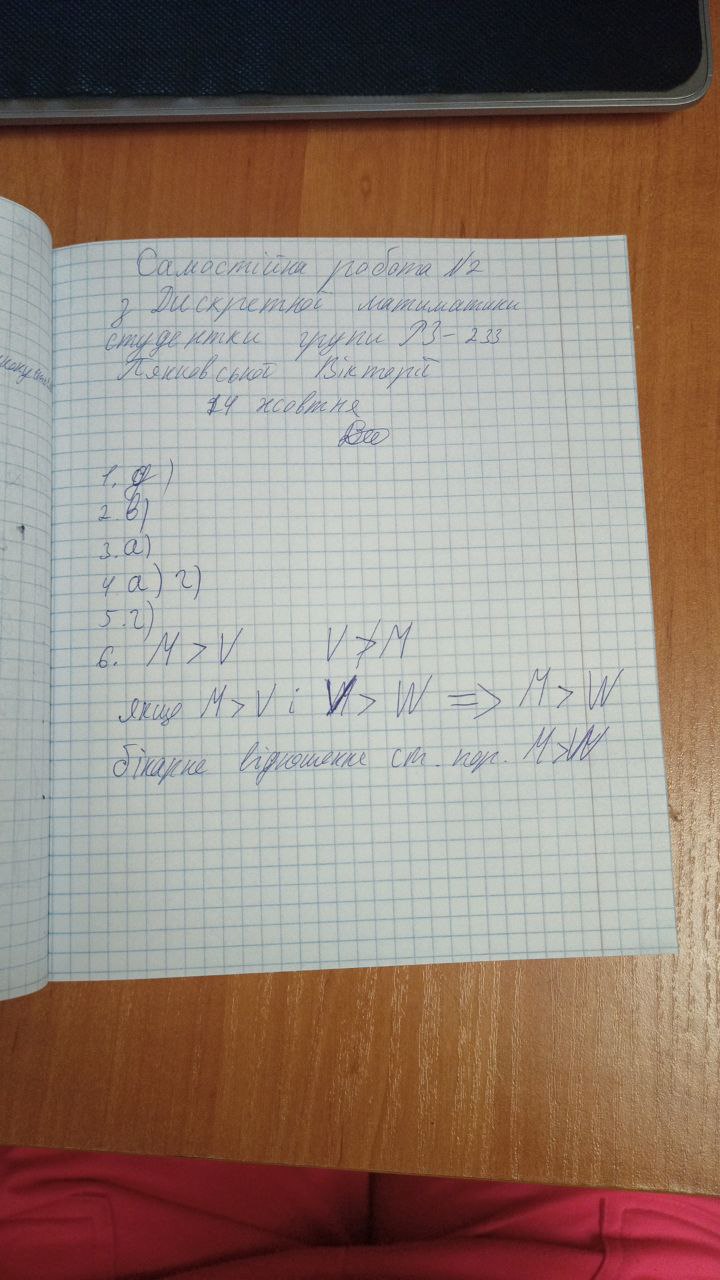 Самостійна работа №2
з Дискретної матиматики
студентки групи РЗ-233
Вікторії
14 жовтня
1. д)
2. в)
3. а)
4 а) г)
5. г)
6. M > V V ≯ M
якщо M > V і V > W => M > W
бінарне відношення ст. пор. M > W